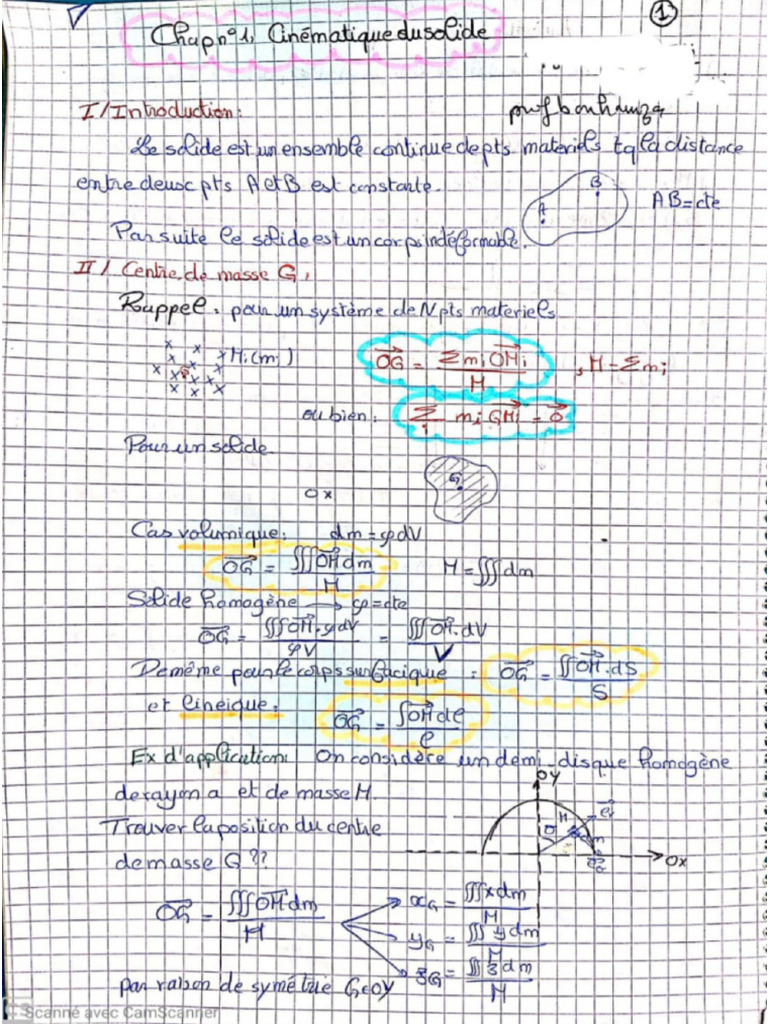 1
Chap n°1, Cinématique du solide
prof bonhamza
I/ Introduction:
Le solide est un ensemble continue de pts materiels tq la distance
entre deux pts A et B est constante.
A B AB = cte
Par suite le solide est un corps indéformable.
II/ Centre de masse G,
Rappel. pour un système de N pts materiels
Mi(mi) G
OG = Σ mi OMi / M , M = Σ mi
ou bien: Σi mi GMi = 0
Pour un solide
O x G
Cas volumique: dm = ρ dV
OG = ∭ OM dm / M M = ∭ dm
Solide homogène → ρ = cte
OG = ∭ OM . ρ dV / ρ V = ∭ OM . dV / V
De même pour le corps surfacique : OG = ∬ OM . dS / S
et lineique: OG = ∫ OM dl / l
Ex d'application: On considère un demi-disque homogène
de rayon a et de masse M.
Trouver la position du centre
de masse G ??
OY M er θ dm OX
OG = ∭ OM dm / M
xG = ∭ x dm / M
yG = ∭ y dm / M
zG = ∭ z dm / M
par raison de symétrie G ∈ OY
CS Scanné avec CamScanner